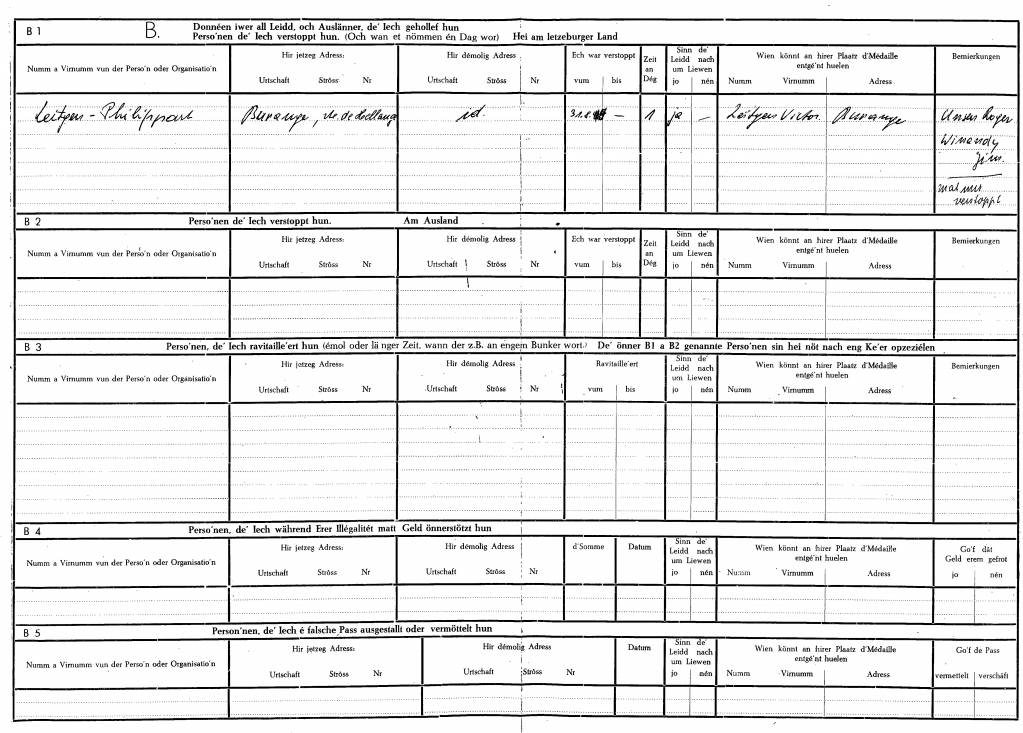 B 1 B. Donnéen iwer all Leidd, och Auslänner, de' Iech gehollef hun
Perso'nen de' Iech verstoppt hun. (Och wan et nömmen én Dag wor) Hei am letzeburger Land
Numm a Virnumm vun der Perso'n oder Organisatio'n
Hir jetzeg Adress:
Urtschaft Ströss Nr
Hir démolig Adress:
Urtschaft Ströss Nr
Ech war verstoppt
vum bis
Zeit an Dég
Sinn de' Leidd nach um Liewen
jo nén
Wien könnt an hirer Plaatz d'Médaille entgé'nt huelen
Numm Virnumm Adress
Bemierkungen
Leitgen - Philippart
Burange, id.
31.8. – 1 ja –
Leitgen Victor. Burange
Unsen Roger
Winandy
Jim.
mat mir
verstoppt
B 2 Perso'nen de' Iech verstoppt hun. Am Ausland
Numm a Virnumm vun der Perso'n oder Organisatio'n
Hir jetzeg Adress:
Urtschaft Ströss Nr
Hir démolig Adress
Urtschaft Ströss Nr
Ech war verstoppt
vum bis
Zeit an Dég
Sinn de' Leidd nach um Liewen
jo nén
Wien könnt an hirer Plaatz d'Médaille entgé'nt huelen
Numm Virnumm Adress
Bemierkungen
B 3 Perso'nen, de' Iech ravitaille'ert hun (émol oder länger Zeit, wann der z.B. an engem Bunker wort.) De' önner B1 a B2 genannte Perso'nen sin hei nöt nach eng Ke'er opzeziélen
Numm a Virnumm vun der Perso'n oder Organisatio'n
Hir jetzeg Adress:
Urtschaft Ströss Nr
Hir démolig Adress
Urtschaft Ströss Nr
Ravitaille'ert
vum bis
Sinn de' Leidd nach um Liewen
jo nén
Wien könnt an hirer Plaatz d'Médaille entgé'nt huelen
Numm Virnumm Adress
Bemierkungen
B 4 Perso'nen, de' Iech während Erer Illégalitét matt Geld önnerstötzt hun
Numm a Virnumm vun der Perso'n oder Organisatio'n
Hir jetzeg Adress:
Urtschaft Ströss Nr
Hir démolig Adress
Urtschaft Ströss Nr
d'Somme
Datum
Sinn de' Leidd nach um Liewen
jo nén
Wien könnt an hirer Plaatz d'Médaille entgé'nt huelen
Numm Virnumm Adress
Go'f dât Geld erem gefrot
jo nén
B 5 Person'nen, de' Iech é falsche Pass ausgestallt oder vermöttelt hun
Numm a Virnumm vun der Perso'n oder Organisatio'n
Hir jetzeg Adress:
Urtschaft Ströss Nr
Hir démolig Adress
Urtschaft Ströss Nr
Datum
Sinn de' Leidd nach um Liewen
jo nén
Wien könnt an hirer Plaatz d'Médaille entgé'nt huelen
Numm Virnumm Adress
Go'f de Pass
vermettelt verschâft